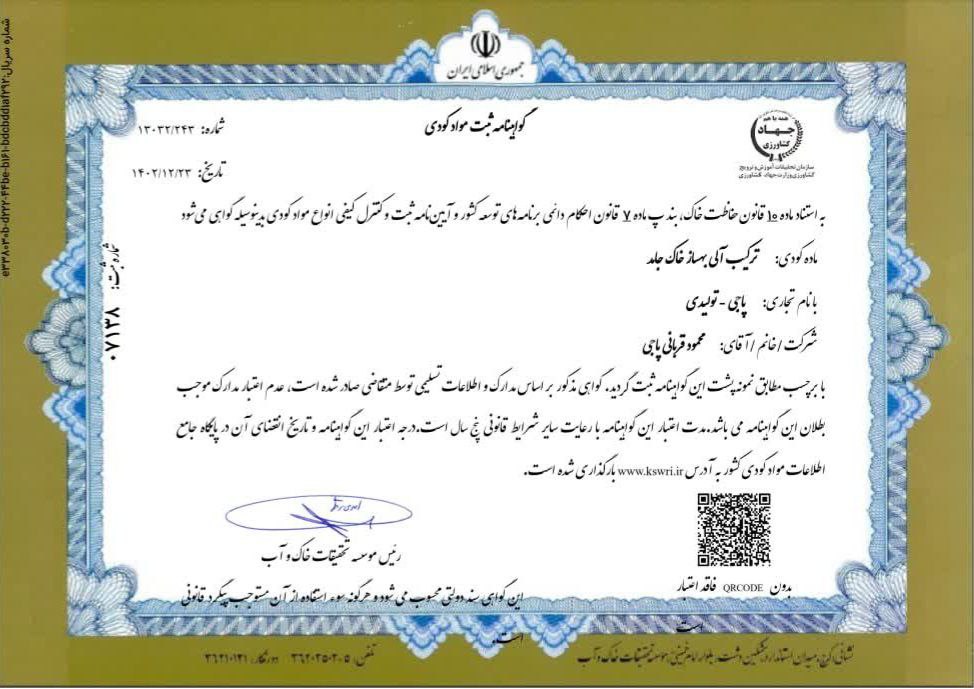 جمهوری اسلامی ایران
همه با هم
جهاد
کشاورزی
سازمان تحقیقات، آموزش و ترویج
کشاورزی وزارت جهاد کشاورزی
گواهینامه ثبت مواد کودی
شماره: ۱۳۰۳۲/۲۴۳
تاریخ: ۱۴۰۲/۱۲/۲۳
به استناد ماده ۱۵ قانون حفاظت خاک، بند پ ماده ۷ قانون احکام دائمی برنامه های توسعه کشور و آیین نامه ثبت و کنترل کیفی انواع مواد کودی بدینوسیله گواهی می شود
ماده کودی: ترکیب آلی بهساز خاک جامد
با نام تجاری: پاجی - تولیدی
شرکت / خانم / آقای: محمود قربانی پاجی
با برچسب مطابق نمونه پشت این گواهینامه ثبت گردید. گواهی مذکور بر اساس مدارک و اطلاعات تسلیمی توسط متقاضی صادر شده است، عدم اعتبار مدارک موجب
بطلان این گواهینامه می باشد.مدت اعتبار این گواهینامه با رعایت سایر شرایط قانونی پنج سال است.درجه اعتبار این گواهینامه و تاریخ انقضای آن در پایگاه جامع
اطلاعات مواد کودی کشور به آدرس www.kswri.ir بارگذاری شده است.
شماره ثبت: ۰۷۱۳۸
رئیس موسسه تحقیقات خاک و آب
بدون QRCODE فاقد اعتبار
است
این گواهی سند دولتی محسوب می شود و هرگونه سوء استفاده از آن مستوجب پیگرد قانونی
است.
نشانی: کرج، میدان استاندارد، مشکین دشت، بلوار امام خمینی، موسسه تحقیقات خاک و آب
تلفن: ۵-۳۶۲۰۲۵۰ دورنگار: ۳۶۲۱۰۱۲۱
شماره سریال: